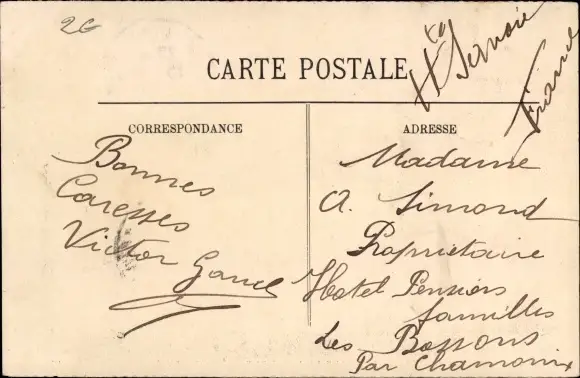 2G
CARTE POSTALE
Hte Savoie
France
CORRESPONDANCE
Bonnes
Caresses
Victor
ADRESSE
Madame
A. Simond
Propriétaire
Hotel Pension
familles
Les Bossons
Par Chamonix